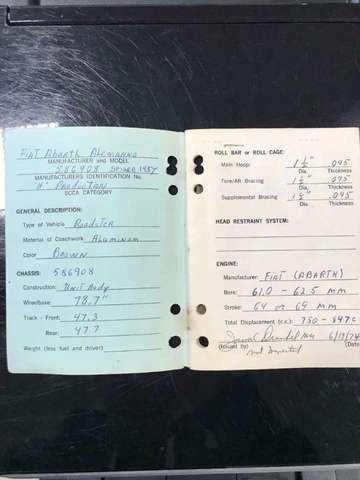 FIAT ABARTH ALEMANNO
MANUFACTURER and MODEL
586908 SPIDER 1957
MANUFACTURERS IDENTIFICATION No.
"H" PRODUCTION
SCCA CATEGORY
GENERAL DESCRIPTION:
Type of Vehicle ROADSTER
Material of Coachwork ALUMINUM
Color BROWN
CHASSIS: 586908
Construction: UNIT BODY
Wheelbase: 78.7"
Track - Front: 47.3
Rear: 47.7
Weight (less fuel and driver)
ROLL BAR or ROLL CAGE:
Main Hoop: 1 1/2" .095
Dia. Thickness
Fore/Aft Bracing 1 1/2" .095
Dia. Thickness
Supplemental Bracing 1 1/2" .095"
Dia. Thickness
HEAD RESTRAINT SYSTEM:
ENGINE:
Manufacturer: FIAT (ABARTH)
Bore: 61.0 - 62.5 mm
Stroke: 64 or 69 mm
Total Displacement (c.c.) 750 - 847cc
6/19/74
(Issued by) (Date)
not inspected